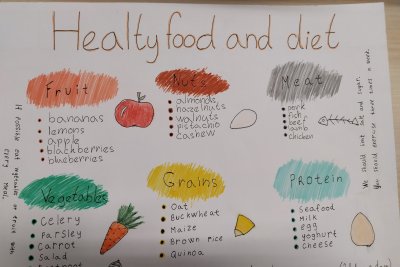 Healty food and diet
Fruit
bananas
lemons
apple
blackberries
blueberries
Nuts
almonds
hazelnuts
walnuts
pistachio
cashew
Meat
pork
fish
beef
lamb
chicken
Vegetables
Celery
Parsley
Carrot
Salad
Grains
Oat
Buckwheat
Maize
Brown rice
Quinoa
Protein
Seafood
Milk
egg
yoghurt
cheese
If possible eat vegetables or fruit with
every meal.
We should limit salt and sugar.
You should exercise three times a week.